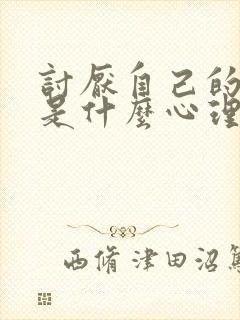 討厭自己的
是什麼心理
西脩津田沼篤